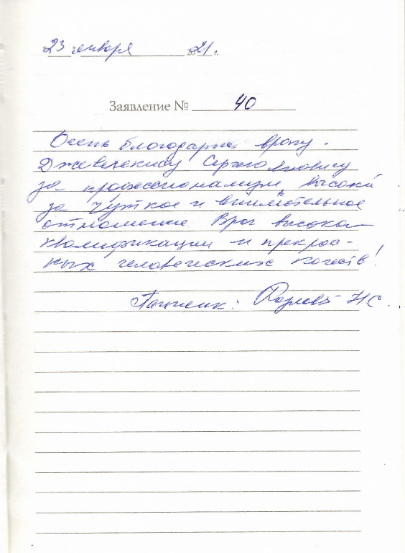 23 января 21г.
Заявление № 40
Очень благодарна врачу.
Сергею Яновичу
за профессионализм, высокий
за чуткое и внимательное
отношение Врач высокой
квалификации и прекрас-
ных человеческих качеств!